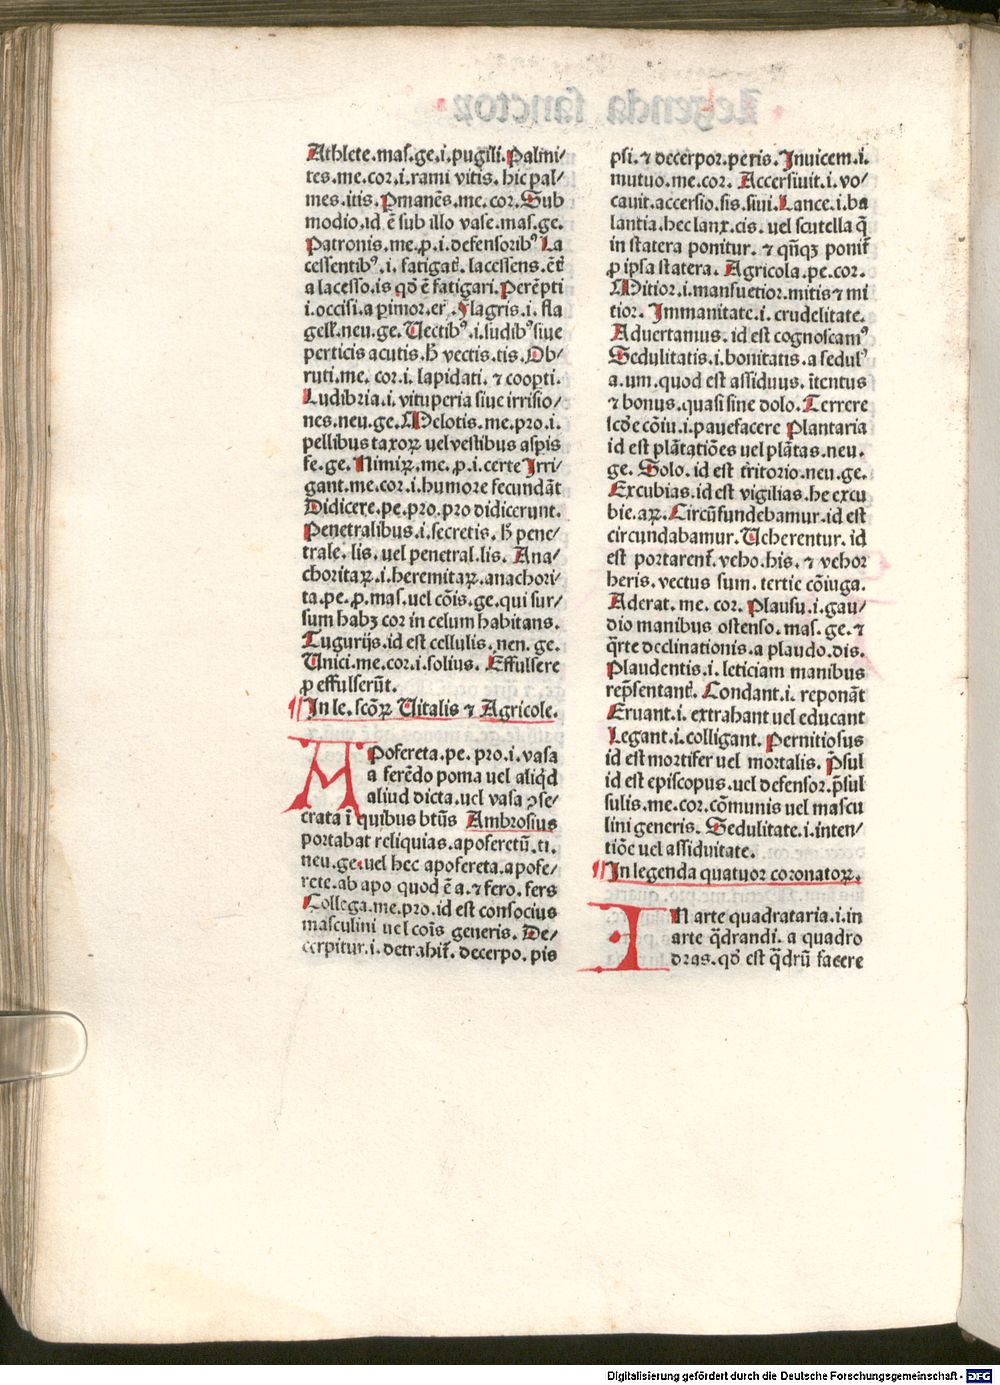 Athlete.mas.ge.i.pugili.Palmi/
tes.me.cor.i.rami vitis.hic pal/
mes.itis.Pmanẽs.me.cor.Sub
modio.id ẽ sub illo vase.mas.ge.
Patronis.me.ꝓ.i.defensoribꝰ La
cessentibꝰ.i.fatigãt.lacessens.ẽt
a lacesso.is qḋ ẽ fatigari.Perẽpti
i.occisi.a pimor.er. Flagris.i.fla
gell.neu.ge.Uectibꝰ.i.sudibꝰ siue
perticis acutis.h̃ vectis.tis.Ob/
ruti.me. cor.i.lapidati.⁊ coopti.
Ludibria.i.vituperia siue irrisio/
nes.neu.ge.Melotis.me.pro.i.
pellibus taxoꝝ uel vestibus aspis
fe.ge.Nimiꝝ.me.ꝓ.i.certe Irri/
gant.me.cor.i.humore fecundãt
Didicere.pe.pro.pro didicerunt.
Penetralibus.i.secretis. h̃ pene/
trale.lis.uel penetral.lis. Ana/
choritaꝝ.i.heremitaꝝ.anachori/
ta.pe.ꝓ.mas.uel cõis.ge.qui sur/
sum habꝫ cor in celum habitans.
Tugurijs.id est cellulis.nen.ge.
Unici.me.cor.i.solius. Effulsere
ꝓ effulserũt.
In le.scõꝝ Uitalis ⁊ Agricole.
APofereta.pe.pro.i.vasa
a ferẽdo poma uel aliqd
aliud dicta.uel vasa ꝯse/
crata ĩ quibus btũs Ambrosius
portabat reliquias.apoferetũ.ti.
neu.ge.uel hec apofereta.apofe/
rete.ab apo quod ẽ a.⁊ fero.fers
Collega.me.pro.id est consocius
masculini uel cois generis. De/
cerpitur.i.detrahit̃.decerpo.pis
psi.⁊ decerpor.peris.Inuicem.i.
mutuo.me.cor. Accersiuit.i.vo/
cauit.accersio.sis.siui.Lance.i.ba
lantia.hec lanx.cis.uel scutella q̃
in statera ponitur.⁊ qñqꝫ ponit̃
ꝓ ipsa statera. Agricola.pe.cor.
Mitior.i.mansuetior.mitis ⁊ mi
tior. Immanitate.i.crudelitate.
Aduertamus.id est cognoscamꝰ
Sedulitatis.i.bonitatis.a sedulꝰ
a.um.quod est assiduus.ĩtentus
⁊ bonus.quasi sine dolo.Terrere
scḋe cõiu.i.pauefacere Plantaria
id est plãtatiões uel plãtas.neu.
ge. Solo.id est tr̃itorio.neu.ge.
Excubias.id est vigilias.he excu
bie.aꝝ.Circũfundebamur.id est
circundabamur.Ueherentur.id
est portarent̃.veho.his.⁊ vehor
heris.vectus sum.tertie cõiuga.
Aderat.me.cor. Plausu.i.gau/
dio manibus ostenso.mas.ge.⁊
q̃rte declinationis.a plaudo.dis.
Plaudentis.i.leticiam manibus
rep̃sentant̃. Condant.i.reponãt
Eruant.i.extrahant uel educant
Legant.i.colligant. Pernitiosus
id est mortifer uel mortalis. P̃sul
id est episcopus.uel defensor.p̃sul
sulis.me.cor.cõmunis uel mascu
lini generis. Sedulitate.i.inten/
tiõe uel assiduitate.
In legenda quatuor coronatoꝝ.
IN arte quadrataria.i.in
arte q̃drandi. a quadro
dras.qḋ est q̃drũ facere
Digitalisierung gefördert durch die Deutsche Forschungsgemeinschaft - DFG